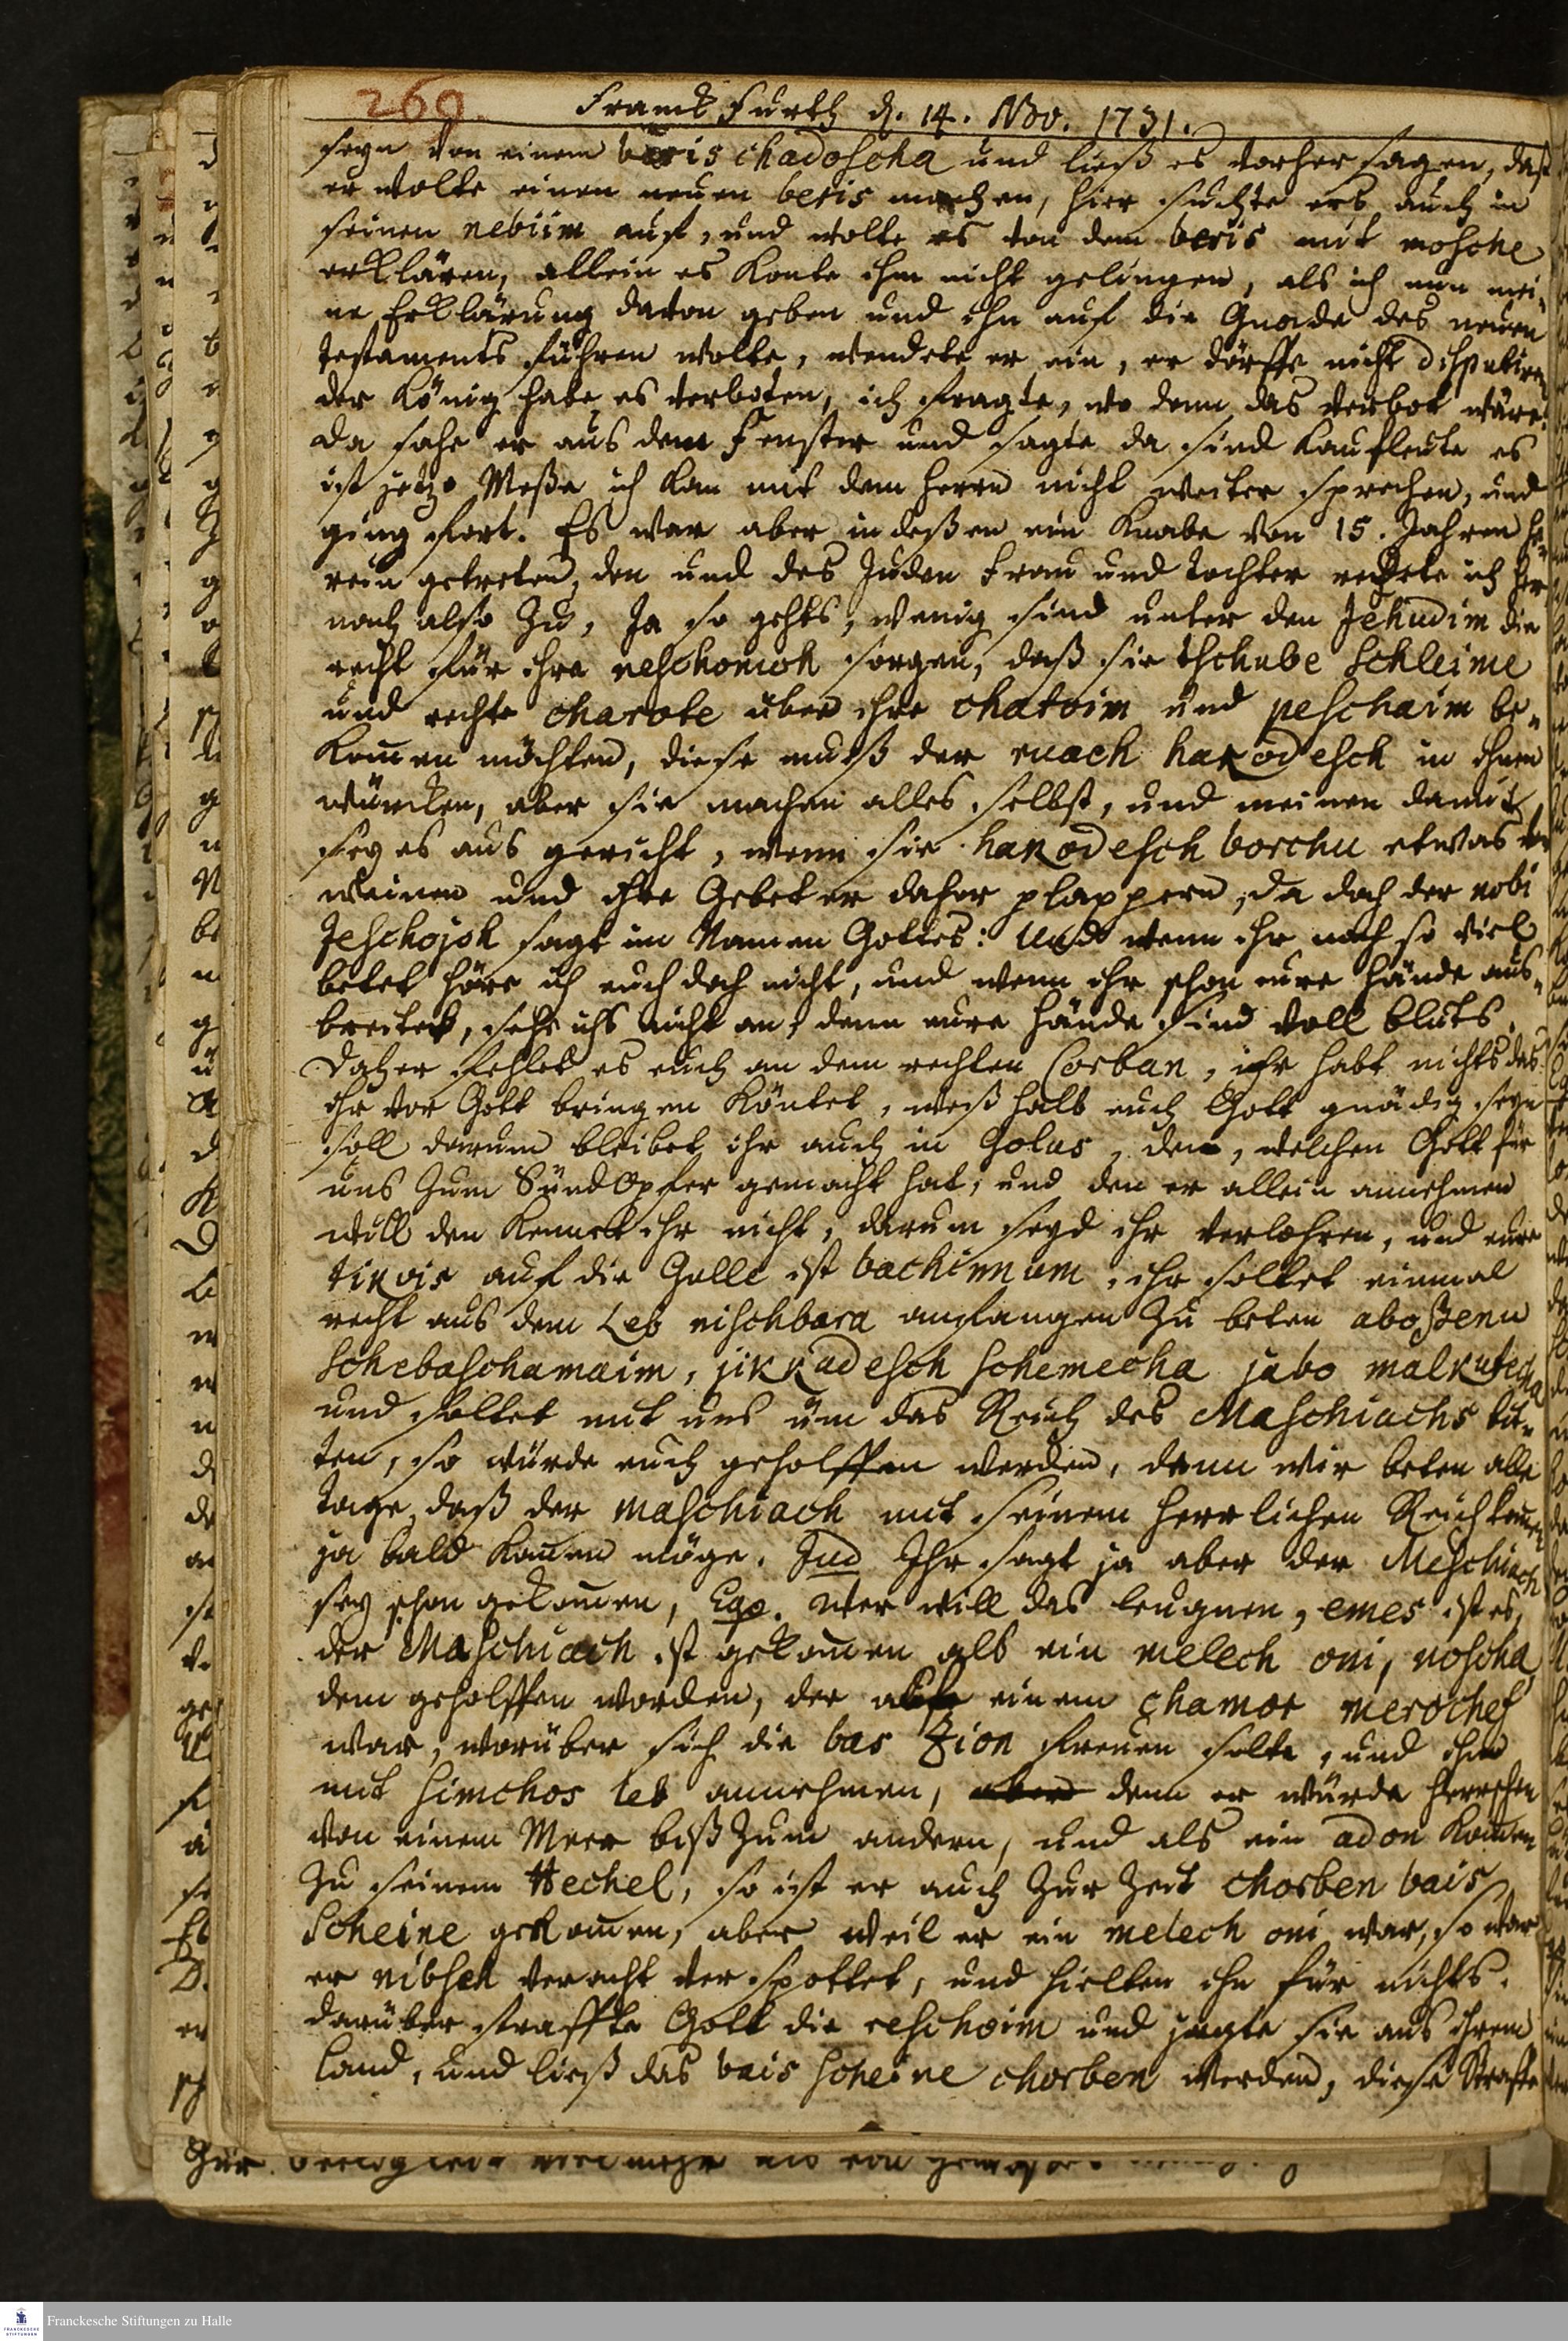 260. Franckfurth d. 14. Nov. 1731.
seyn von einem beris chadoscha und ließ es vorher sagen, daß
er wolte einen neuen beris machen, hier suchte ers auch in
seinen nebiim auf, und wolte es von dem beris mit mosche
erklären, allein es konte ihm nicht gelingen, als ich nun mei-
ne Erklärung davon geben und ihn auf die Gnade des neuen
testaments führen wolte, wendete er ein, er dörffe nicht disputiren
der König habe es verboten, ich fragte, wo denn das verbot wäre:
da sahe er aus dem Fenster und sagte da sind Kaufleute es
ist jetzo Meße ich kan mit dem Herrn nicht weiter sprechen, und
ging fort. Es war aber indeßen ein Knabe von 15. Jahren he-
rein getreten, den und des Juden Frau und Tochter redete ich her
nach also zu, Ja so gehts, wenig sind unter den Jehudim die
recht für ihre neschomoh sorgen, daß sie tschube schleime
und rechte charote über ihre chatoim und peschaim be-
kom̅en möchten, diese muß der ruach hakodesch in ihnen
würcken, aber sie machen alles selbst, und meinen damit
sey es aus gericht, wenn sie hakodesch borchu etwas vor
weinen und ihre Gebeter daher plappern, da doch der nobi
Jeschojoh sagt im Namen Gottes: Und wenn ihr noch so viel
betet höre ich euch doch nicht, und wenn ihr schon eure Hände aus-
breitet, sehe ichs nicht an, denn eure Hände sind voll bluts.
Daher fehlet es euch an dem rechten Corban, ihr habt nichts das
ihr vor Gott bringen köntet, weßhalb euch Gott gnädig seyn
soll darum bleibet ihr auch in Golus, den, welchen Gott für
uns zum SündOpfer gemacht hat, und den er allein annehmen
will den kennet ihr nicht, darum seyd ihr verlohren, und eure
tikvis auf die Gulle ist bachinnum, ihr soltet einmal
recht aus dem Leb nischbara anfangen zu beten aboßenu
schebaschamaim, jikkadesch schemecha jabo malkutecha
und soltet mit uns um das Reich des Maschiachs bit-
ten, so würde euch geholffen werden, denn wir beten alle
tage, daß der maschiach mit seinem herrlichen Reich kom̅en
ja bald kom̅en möge. Jud Ihr sagt ja aber der Meschiach
sey schon gekom̅en, Ego. Wer will das leugnen, emes ist es,
der Maschiach ist gekom̅en als ein melech oni, noscha
dem geholffen worden, der auf einem chamor merochef
war, worüber sich die bas Zion freuen solte, und ihn
mit simchos leb annehmen, aber denn er würde herrschen
von einem Meer biß zum andern, und als ein adon kom̅en
zu seinem Hechel, so ist er auch zur Zeit chorben bais
Scheine gekom̅en, aber weil er ein melech oni war, so war
er nibseh veracht verspottet, und hielten ihn für nichts.
darüber straffte Gott die reschoim und jagte sie aus ihrem
Land, und ließ das bais scheine chorben werden, diese Straffe
Franckesche Stiftungen zu Halle